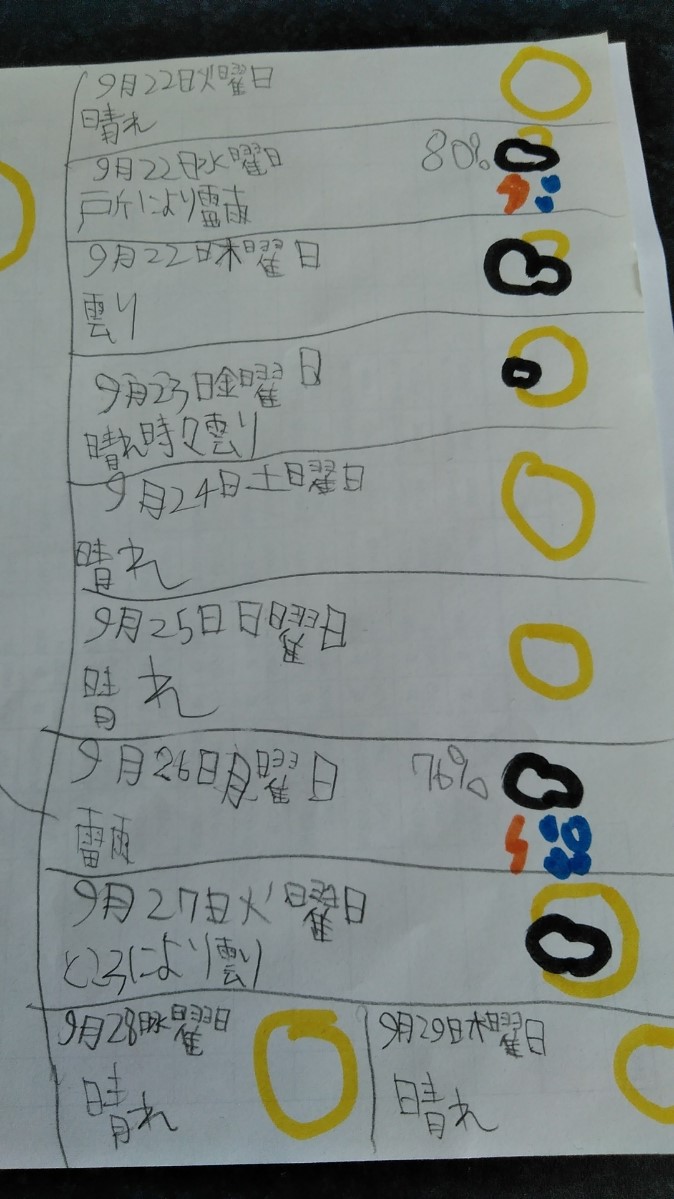 9月22日火曜日
晴れ
9月22日水曜日
80%
所により雷雨
9月22日木曜日
曇り
9月23日金曜日
晴れ時々曇り
9月24日土日曜日
晴れ
9月25日日曜日
晴れ
9月26日月曜日
76%
雷雨
9月27日火曜日
ところにより曇り
9月28日水曜日
晴れ
9月29日木曜日
晴れ